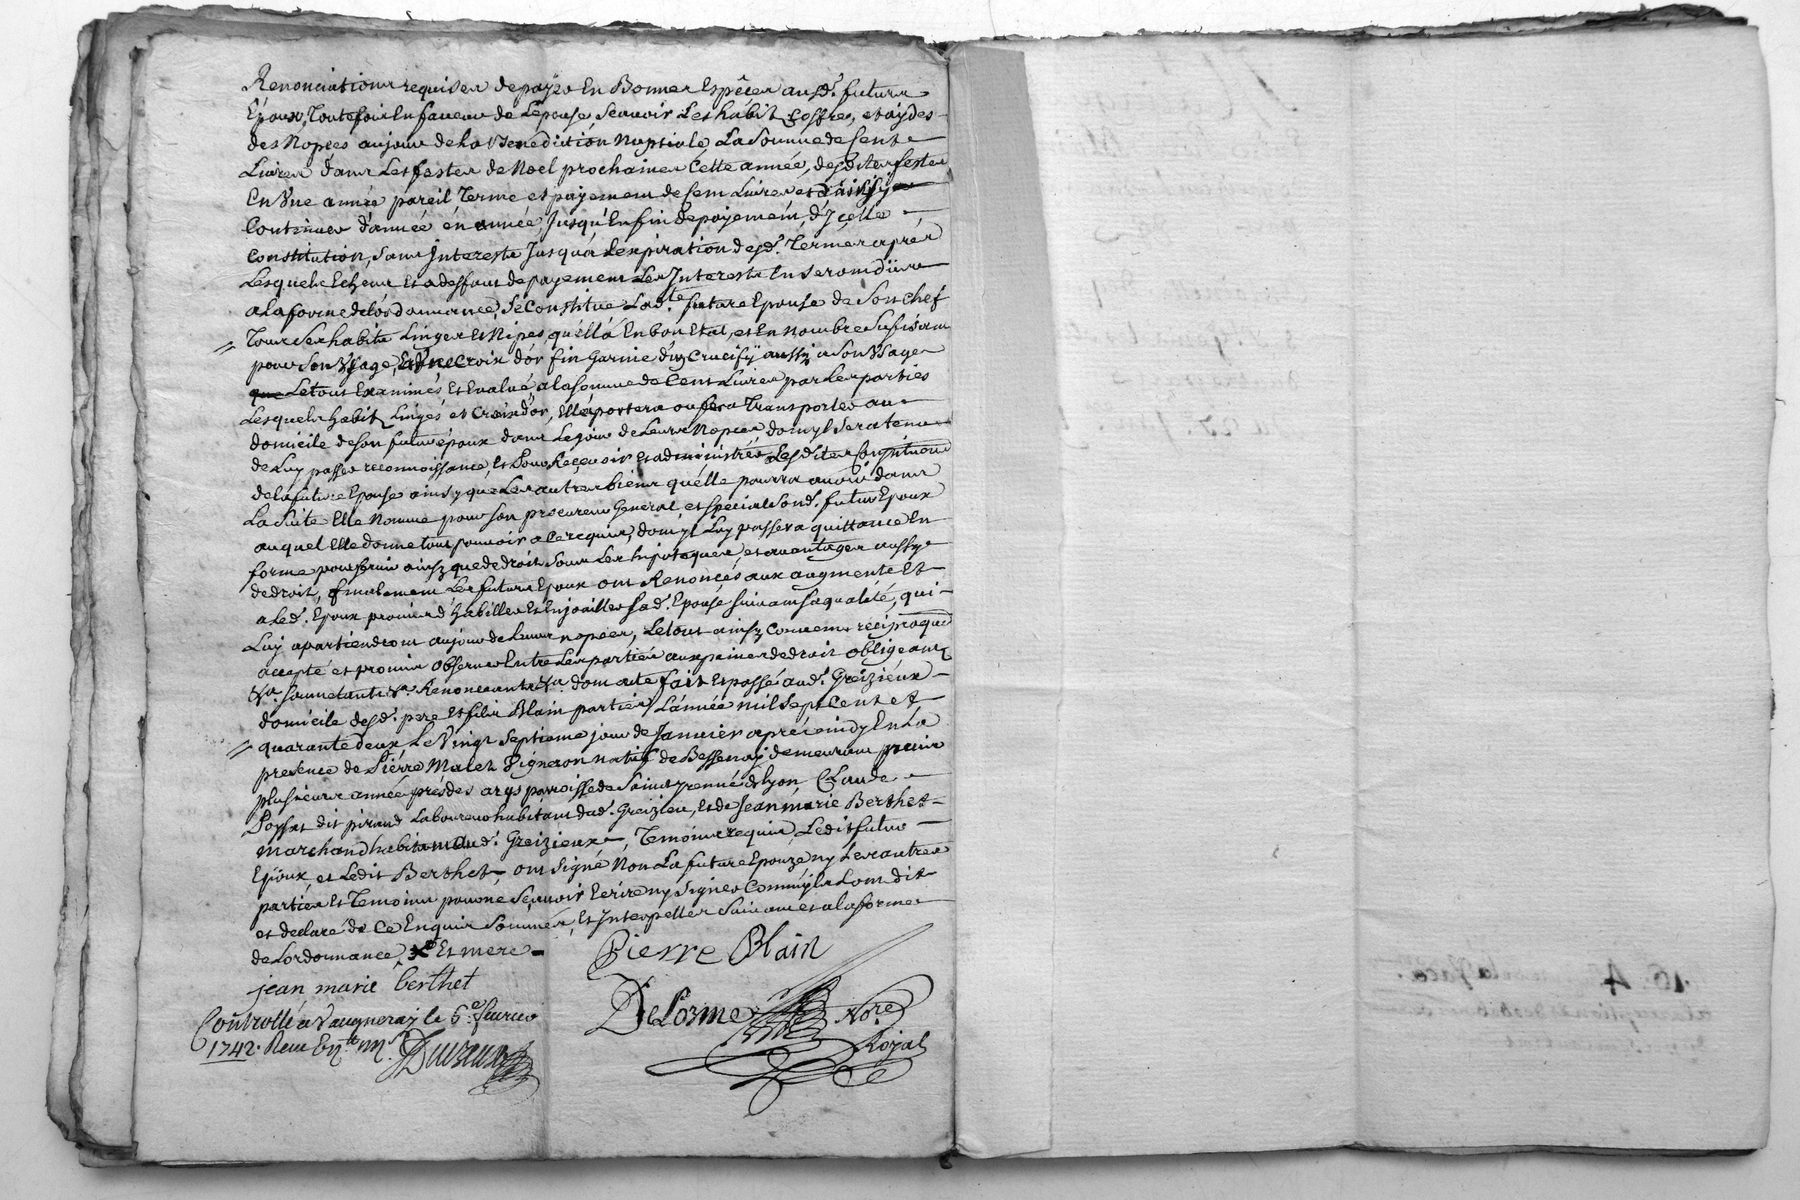 Renonciations requises de payer En Bonnes Espéces ausd. futurs
Époux, Toutefois En faveur de L'epouse, Scavoir Les habit Coffres, et aydes
des Nopces au jour de la Benediction Nuptiale, La Somme de Cent
Livres dans Les festes de Noel prochaines Cette année, desdites festes
En Une année pareil Terme et payement de Cent Livres et d'ainsy
Continuer d'année en année, Jusqu'En fin de payement, d'Jcelle
Constitution, Sans Jnterests Jusqu'a L'expiration desd. Termes aprés
Lesquels Echeus Et a deffaut de payement Les Jnterests En seront düus
a la forme de L'ordonnance, Se Constitue Lad.te future Epouse de Son chef
Tous Ses habits Linges Et Nipes quélle a En bon Etat, et En nombre Sufisant
pour Son Usage, Et Une Croix d'or fin Garnie d'un Crucifix aussi a Son Usage
Le tout Examinés Et Evalué, a la Somme de Cent Livres par Les parties
Lesquels habit, Linges et Croix d'or, Elle portera ou fera Transporter au
domicile de Son futur époux dans Le jour de Leurs Nopces dont yl Sera tenu
de Luy passer reconnoissance, Et pour Recevoir et administrer Lesdites Constitutions
de la future Epouse ainsy que Les autres biens qu'elle pourra avoir dans
La Suite Elle Nomme pour Son procureur General et Special Sond. futur Epoux
auquel Elle donne tout pouvoir a Ce requis, dont yl Luy passera quittance En
forme pour Servir ainsy que de droit Sous Les hipoteques et avantages aussy
de droit, finalement Les futurs Epoux ont Renoncés aux augments Et
a Led. Epoux promis d'habiller Et Enjoailler Sad. Epouse Suivant Sa qualité, qui
Luy apartiendront au jour de Leurs nopces, Le tout ainsy Convenu reciproquement
accepté et promis observer Entre Les parties aux peines de droit obligeants
&a. Soumetants &a. Renonceants &a. dont acte fait Et passé aud. Greizieux
domicile desd. pere Et fils Blain parties, L'année mil Sept Cent et
quarante deux Le Vingt Septieme jour de Janvier aprés midy En La
presence de Piérre Malet Vigneron natif de Bessenay demeurant depuis
plusieurs année prés des arcs parroisse de Saint yrenné de lyon, Claude
dit piraud Laboureur habitant dud. Greizieu, Et de Jean marie Berthet
marchand habitant aud. Greizieux, Temoins requis Ledit futur
Epoux et Ledit Berthet, ont Signé Non La future Epouze ny Les autres
parties Et Temoins pour ne Scavoir Ecrire ny Signer Comm'yls L'ont dit
et declaré de Ce Enquis Sommés, Et Jnterpellés Suivant et a la forme
de L'ordonnance, Et mere
Pierre Blain
jean marie berthet
Controllé a Vaugneray le 6e fevrier
1742. Receu
DeLorme Nore
Royal